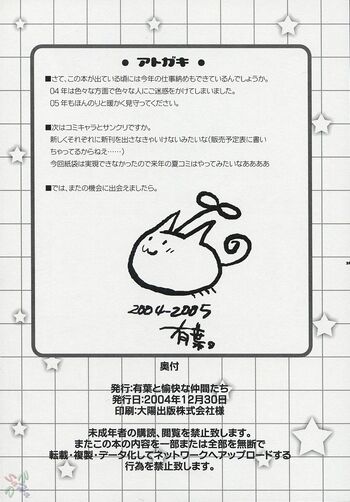 ● アトガキ ●
■さて、この本が出ている頃には今年の仕事納めもできているんでしょうか。
04年は色々な方面で色々な人にご迷惑をかけてしまいました。
05年もほんのりと暖かく見守ってください。
■次はコミキャラとサンクリですか。
新しくそれぞれに新刊を出さなきゃいけないみたいな(販売予定表に書い
ちゃってるからねえ……)
今回紙袋は実現できなかったので来年の夏コミはやってみたいなああああ
■では、またの機会に出会えましたら。
2004-2005
有葉
奥付
発行:有葉と愉快な仲間たち
発行日:2004年12月30日
印刷:大陽出版株式会社様
未成年者の購読、閲覧を禁止致します。
またこの本の内容を一部または全部を無断で
転載・複製・データ化してネットワークへアップロードする
行為を禁止致します。